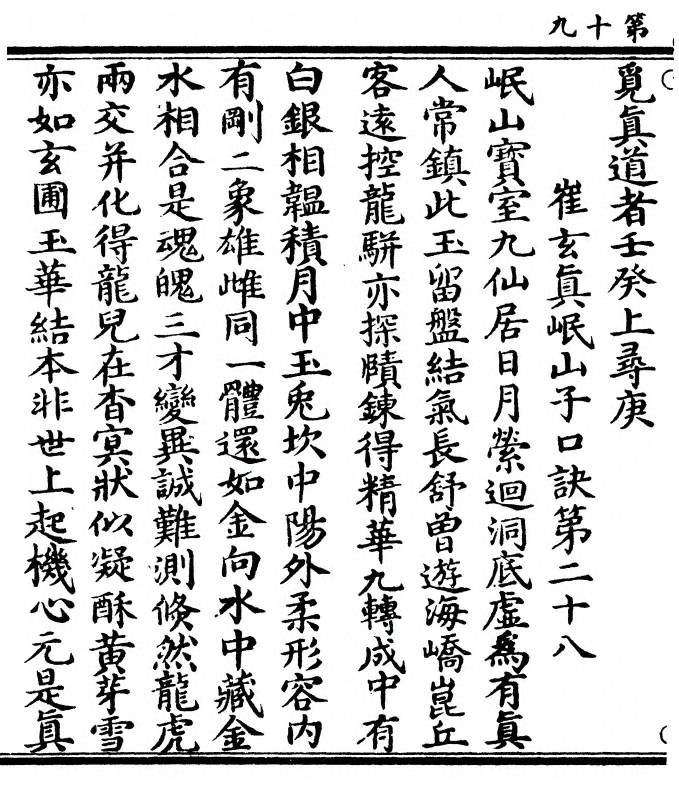 第十九
覓眞道者壬癸上尋庚
崔玄眞岷山子口訣第二十八
岷山寶室九仙居日月縈迴洞底虛爲有眞
人常鎮此玉留盤結氣長舒曾遊海嶠崑丘
客遠控龍駢亦探賾鍊得精華九轉成中有
白銀相韞積月中玉兎坎中陽外柔形容內
有剛二象雄雌同一體還如金向水中藏金
水相合是魂魄三才變異誠難測倐然龍虎
兩交并化得龍兒在杳冥狀似凝酥黄芽雪
亦如玄圃玉華結本非世上起機心元是眞